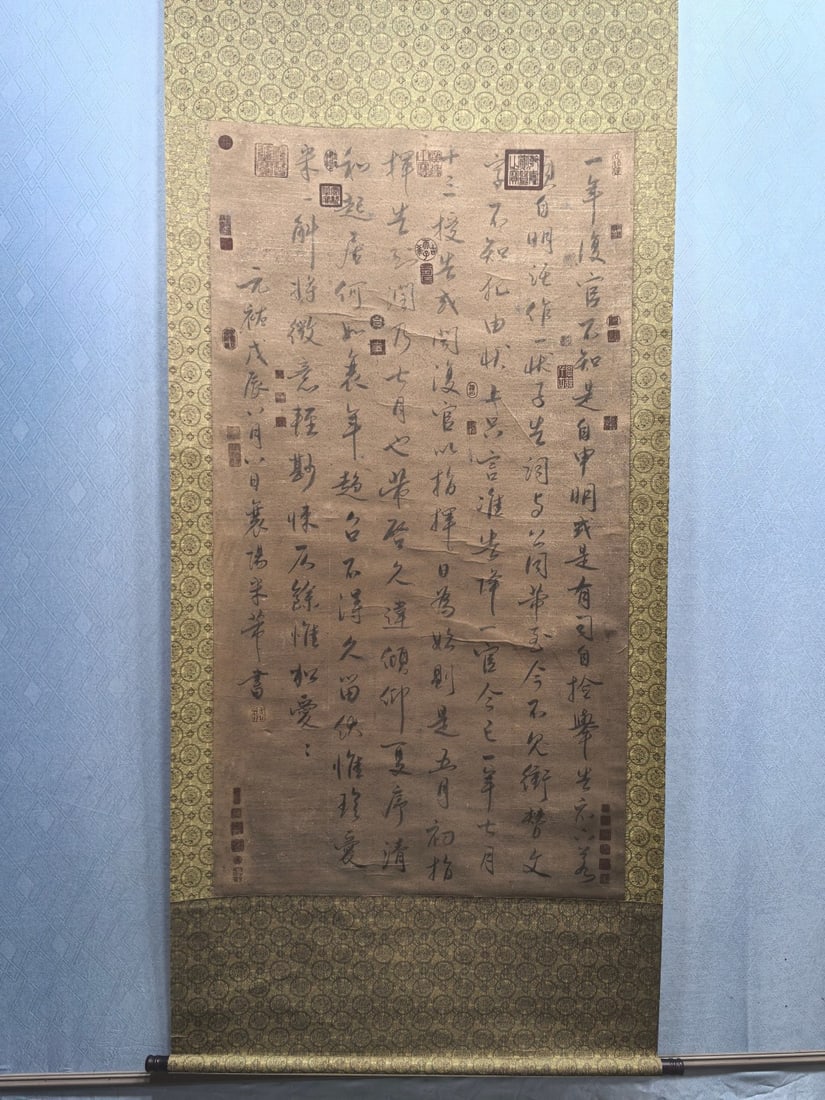 一年復官不知是自申明或是有司自撿舉告示下若
須自明註作一狀子告詞与公同芾至今不見衝替文
字不知犯由狀上只言准告降一官今已一年七月
十三授告或聞復官以指揮日為始則是五月初指
揮告示閏乃七月也芾啓久違傾仰夏序清
和起居何如衰年趨召不得久留伏惟珍愛
米一斛將微意輕尠悚仄餘惟加愛
元祐戊辰八月八日襄陽米芾書